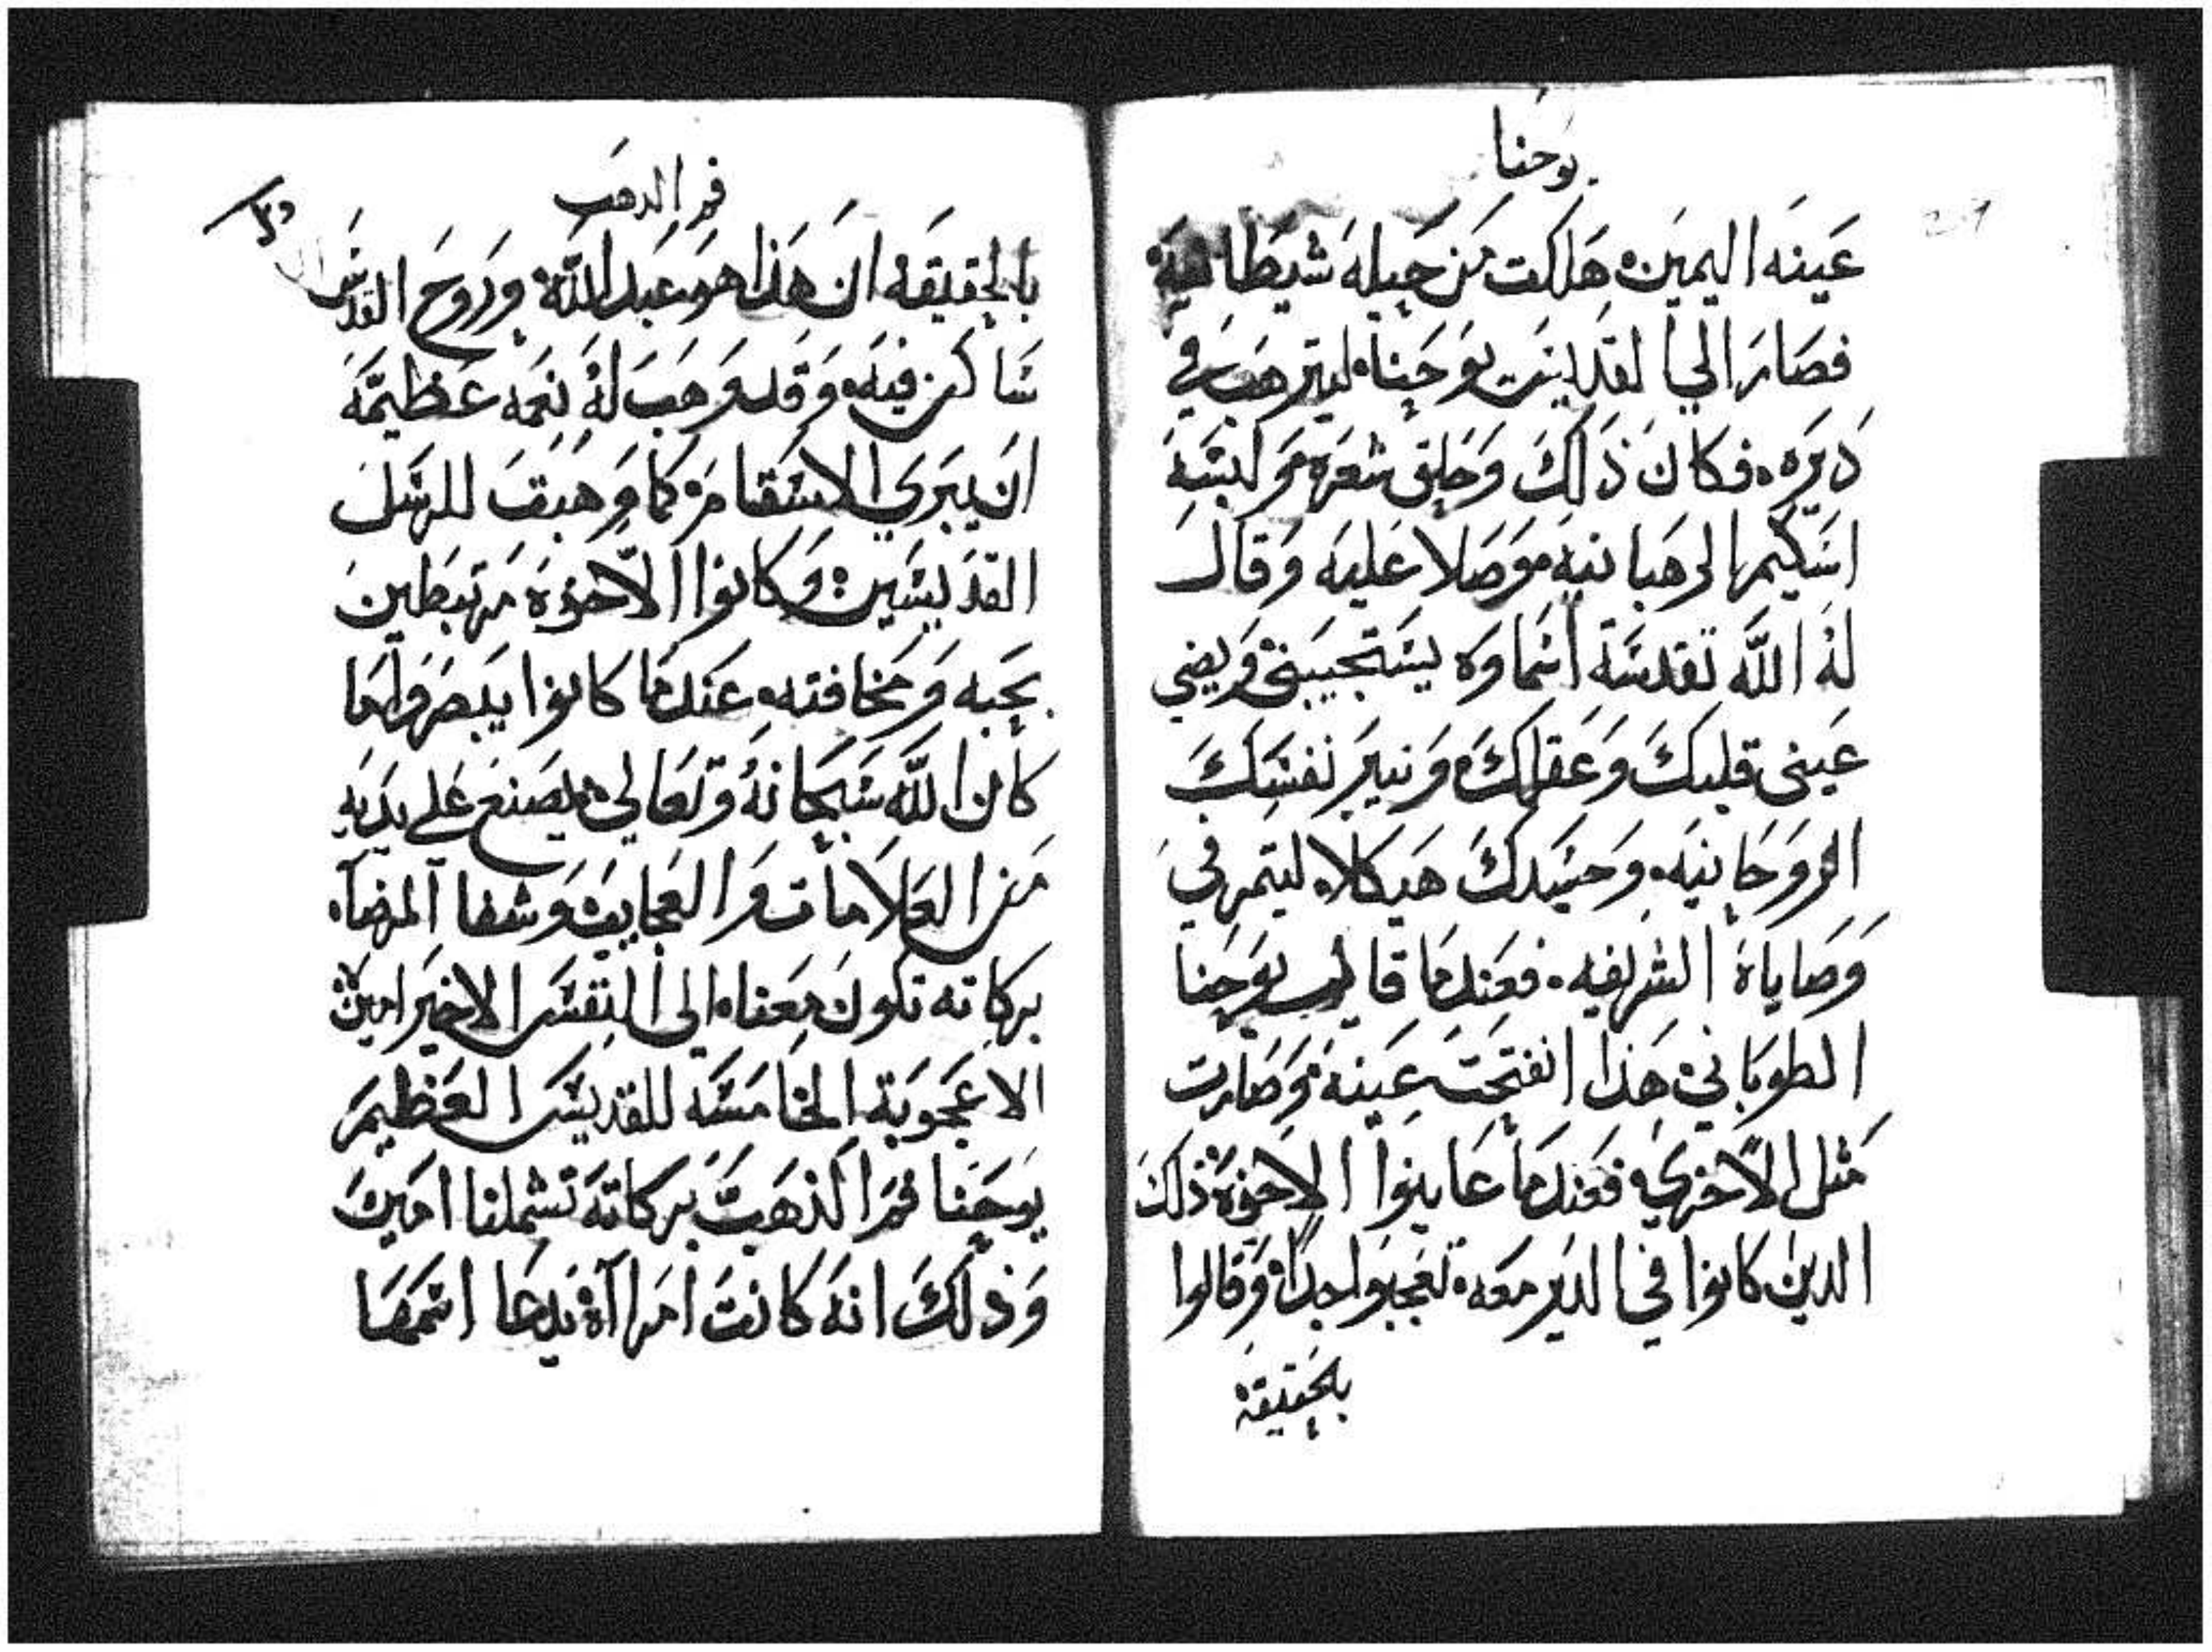 يوحنا
عينه اليمين هلكت من حيله شيطانية
فصار الي القديس يوحنا ليترهب في
ديره فكان ذلك وحلق شعره ولبسه
اسكيم الرهبانيه وصلا عليه وقال
له الله تقدسة اسماوه يستجيبني ويضي
عيني قلبك وعقلك ونير نفسك
الروحانيه وحسدك هيكلا ليتم في
وصاياه الشريفه فعندما قال يوحنا
الطوباني هذا انفتحت عينه وصارت
مثل الاخري فعندما عاينوا الاخوة ذلك
الدين كانوا في الدير معه تعجبوا جدا وقالوا
بلحقيقة
فم الدهب
بالحقيقه ان هذا هو عبد الله وروح القدس
ساكن فيه وقد وهب له نعمه عظيمة
ان يبري الاسقام كما وهبت للرسل
القديسين وكانوا الاخوة مرتبطين
بحبه ومخافته عندما كانوا يبصروا ما
كان الله سبحانه وتعالي يصنع علي يديه
من العلامات والعجايب وشفا المرضا
بركاته تكون معنا الى النفس الاخير امين
الاعجوبة الخامسه للقديس العظيم
يوحنا فم الذهب بركاته تشملنا امين
وذلك انه كانت امراة يدها اسمها